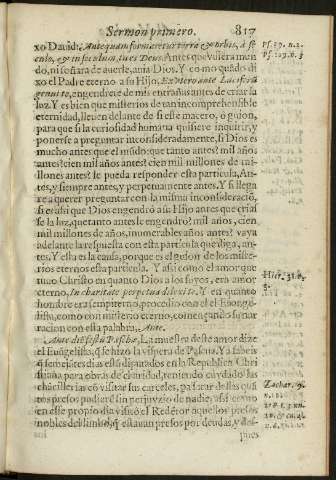 Sermon primero. 817
xo Dauid: Antequam formaretur terra & orbis, à se
culo, & in seculum, tu es Deus. Antes que vuiera mun
do, ni soñara de auerle, auia Dios. Y como quado di
xo el Padre eterno a su Hijo, Ex vtero ante Luciferũ
genui te, engendrete de mis entrañas antes de criar la
luz. Y es bien que misterios de tan incomprehensible
eternidad, lleuen delante de si esse macero, ò guion,
para que si la curiosidad humana quisiere inquirir, y
ponerse a preguntar inconsideradamente, si Dios es
mucho antes que el mũdo: que tanto antes? mil años
antes? cien mil años antes? cien mil millones de mi-
llones antes? se pueda responder esta particula, An-
tes, y siempre antes, y perpetuamente antes. Y si llega
re a querer preguntar con la misma inconsideraciõ,
si era assi que Dios engendrò a su Hijo antes que crias
se la luz, que tanto antes le engendrò? mil años, cien
mil millones de años, inumerables años antes? vaya
adelante la respuesta con esta particula que diga, an-
tes. Y esta es la causa, porque es el guion de los miste-
rios eternos esta particula. Y assi como el amor que
tiuo Christo en quanto Dios a los suyos, era amor
eterno, In charitate perpetua dilexi te. Y en quanto
hombre era sempiterno, procedio con el el Euange-
lista, como con misterio eterno, començando su nar
racion con esta palabra, Ante.
Ante diem festũ Paschæ. La muestra deste amor dize
el Euãgelista, q̃ se hizo la vispera de Pascua. Ya sabeis
q̃ semejãtes dias està diputados en la Republica Chri
stiana para obras de claridad, teniendo cuydado las
chãcillerias cõ visitar sus carceles, para traer dellas los
presos pudierẽ sin perjuyzio de nadie: assi como
en esse propio dia visitò el Redẽtor aquellos presos
nobles del limbo, q̃ estauan presos por deudas, y del-
pues
Ps. 89. n. 2.
Ps. 109. n. 3
Hier. 31. n.
3.
Zachar. 9.
n. 11.